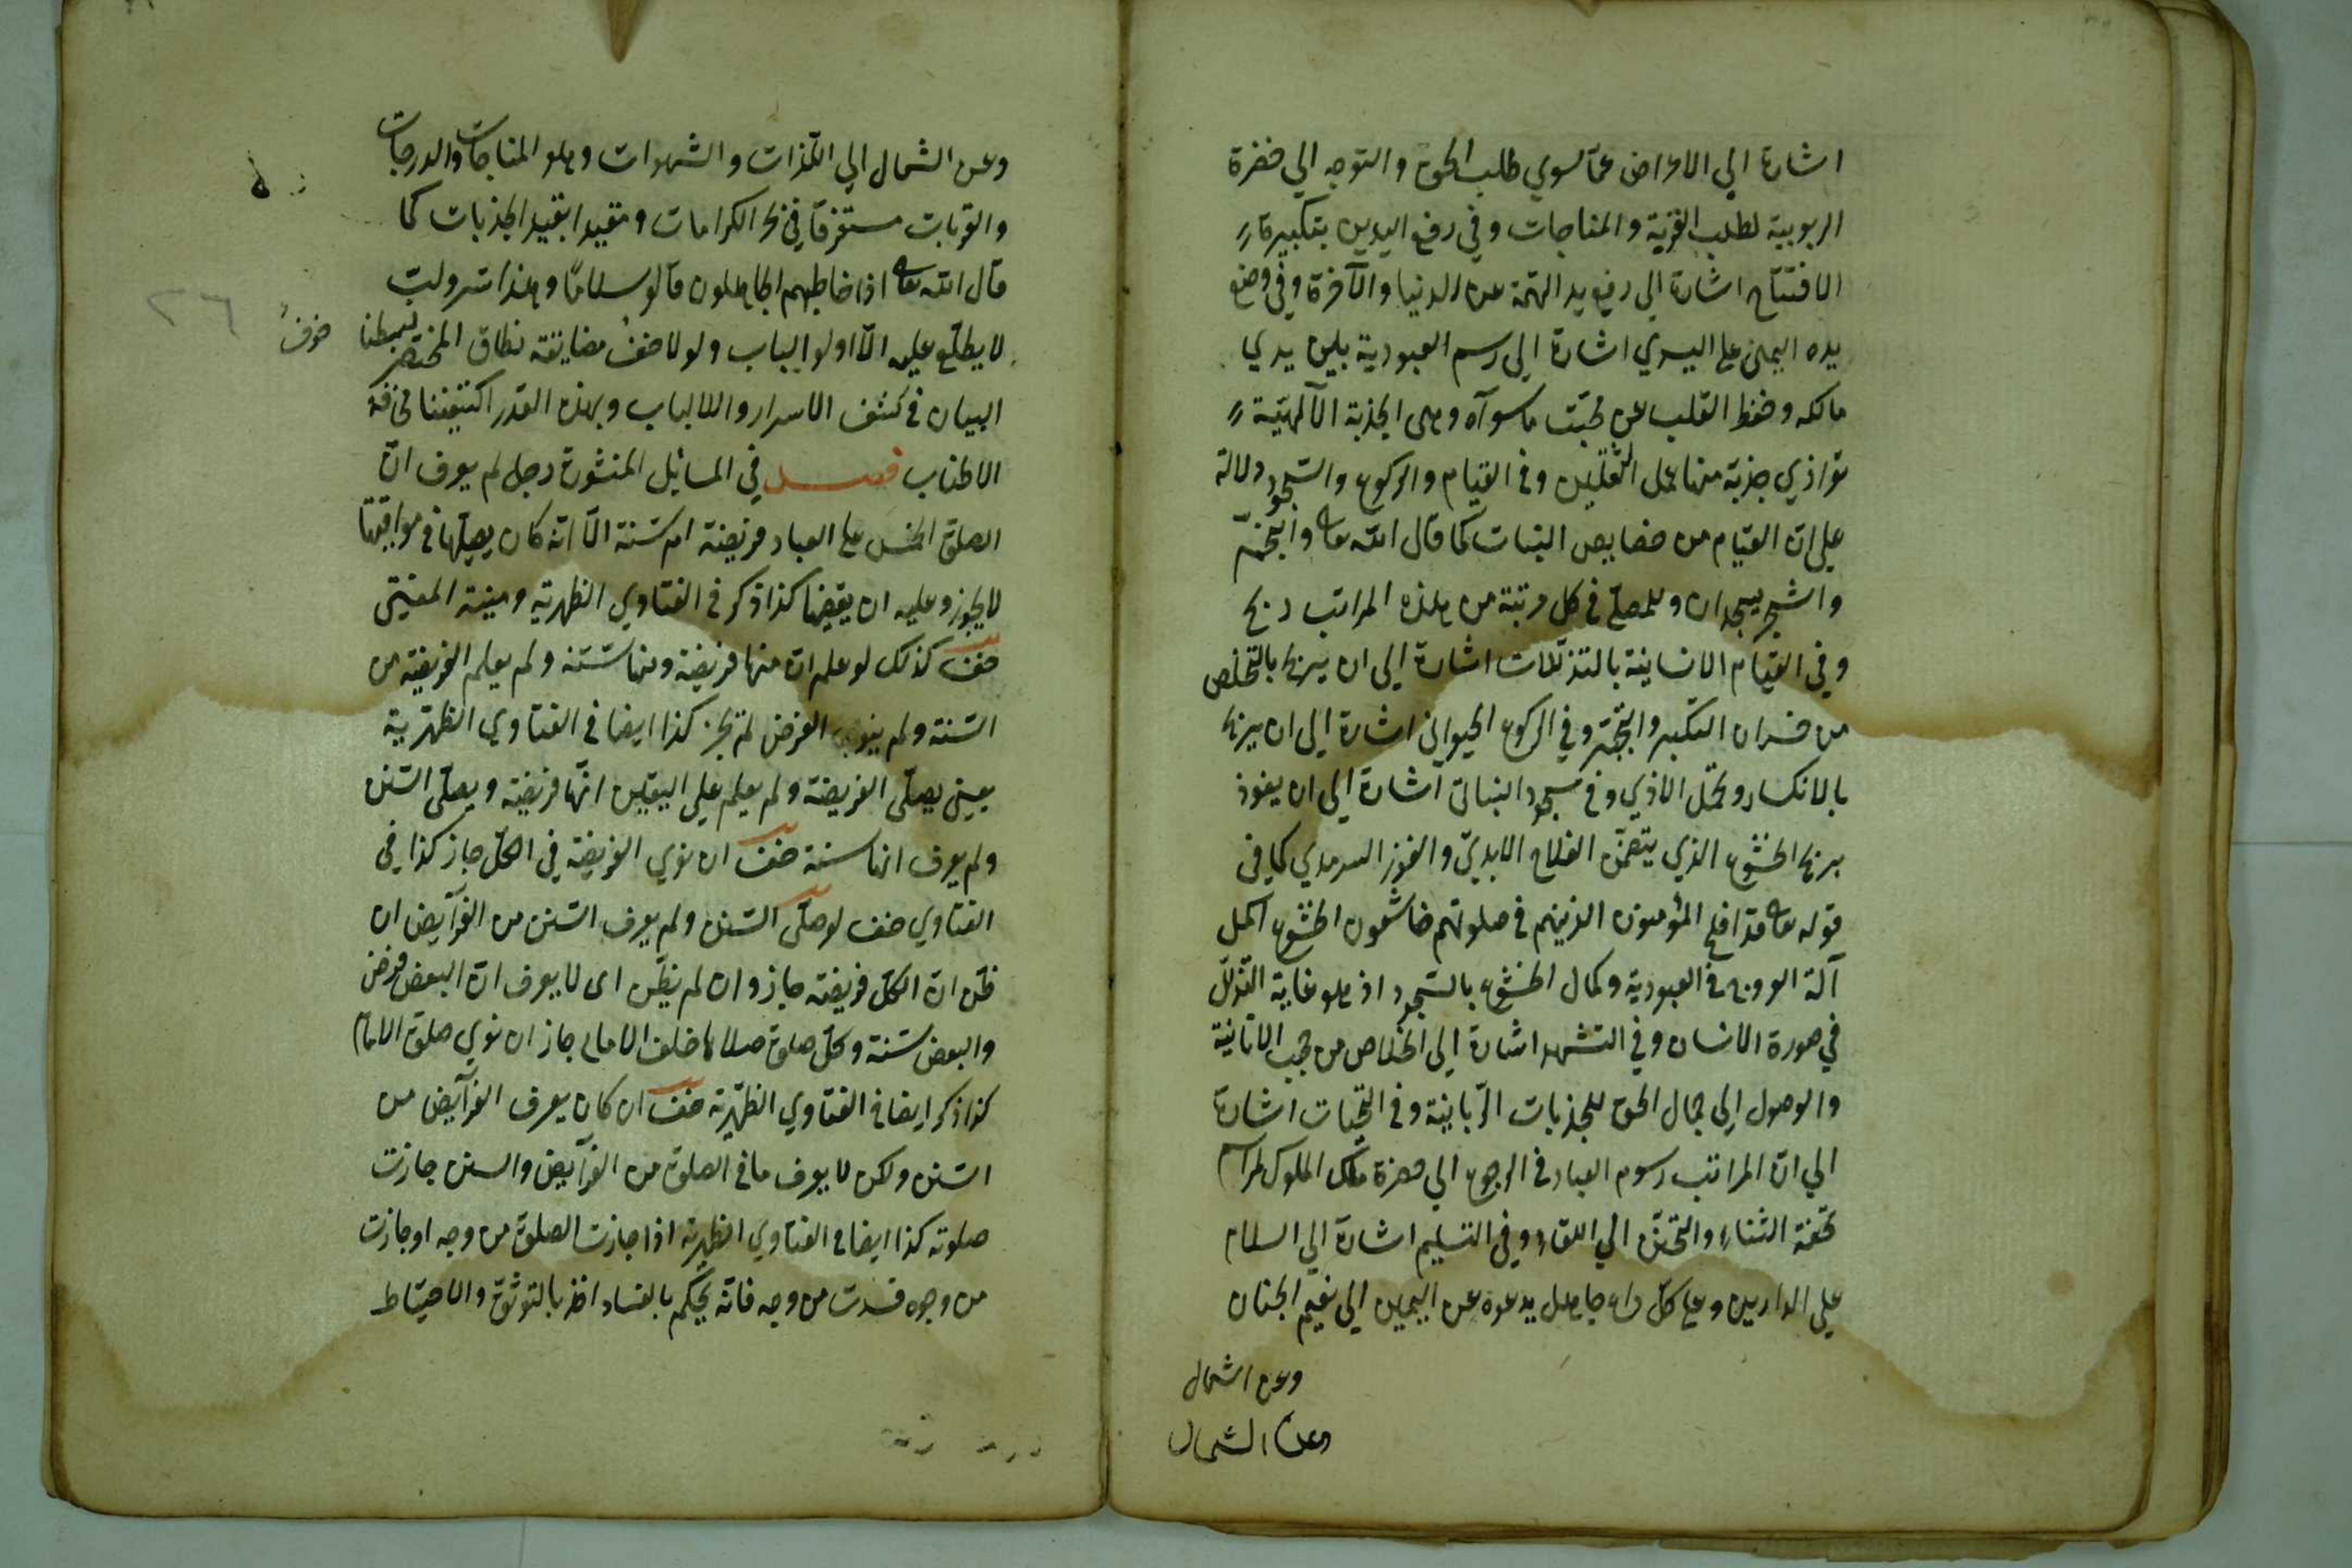 اشارة الي الاعراض عمّا سوي طلب الحق والتوجه الي حضرة
الربوبية لطلب القربة والمناجات وفي رفع اليدين بتكبيرة
الافتتاح اشارة الي رفع يد الهمّة عن الدنيا والآخرة وفي وضع
يده اليمني علي اليسري اشارة الي رسم العبودية بين يدي
مالكه وحفظ القلب عن محبّت ما سوآه وهي الجذبة الآلهيّة
توازي جذبة منها عمل الثقلين وفي القيام والركوع والسّجود دلالة
علي انّ القيام من خصايص النبات كما قال الله تعالي والنّجم
والشجر يسجدان وللمصلّي في كل مرتبة من هذه المراتب ربح
وفي القيام الانسانية بالتذلّلات اشارة الي ان يربح بالتخلّص
من خسران التكبّر والتجبّر وفي الركوع الحيواني اشارة الي ان يربح
بالانكسار وتحمّل الاذي وفي سجود النباتي اشارة الي ان يفوز
بربح الخشوع الذي يتضمّن الفلاح الابديّ والفوز السرمدي كما في
قوله تعالي قد افلح المؤمنون الذينهم في صلوتهم خاشعون الخشوع اكمل
آلة العروج في العبودية وكمال الخشوع بالسّجود اذ هو غاية التذلّل
في صورة الانسان وفي التشهد اشارة الي الخلاص من حجب الانانية
والوصول الي جمال الحق للجذبات الرّبانية وفي التحيّات اشارة
الي انّ المراتب رسوم العباد في الرجوع الي حضرة ملك الملوك لمراسم
تحفة الثناء والتحنّن الي اللقاء وفي التسليم اشارة الي السلام
علي الدارين وعلي كلّ داع جاهل يدعوه عن اليمين الي نعيم الجنان
وعن الشمال
وعن الشمال
وعن الشمال الي اللّذات والشهوات وهو المناجات والدرجات
والقربات مستغرقا في بحر الكرامات ومقيدا بقيد الجذبات كما
قال الله تعالي اذا خاطبهم الجاهلون قالوا سلامًا وهذا
لا يطلّع عليه الّا اولو الباب ولولا خفُ مضايقة نطاق المختصر لبسطنا
خوفُ
٢٦
البيان في كشف الاسرار والالباب وبهذه القدر اكتفينا مخافة
الاطناب فصل في المسائل المنثورة رجل لم يعرف انّ
الصلوة الخمس علي العباد فريضة ام سنّة الّا انّه كان يصلّيها في مواقيتها
لا يجوز وعليه ان يقضيها كذا ذكر في الفتاوي الظهرية ومنية المفتي
صف كذلك لو علم انّ منها فريضة ومنها سنّة ولم يعلم الفريضة من
السّنة ولم ينوي الفرض لم تجز كذا ايضا في الفتاوي الظهيرية
يعني يصلّي الفريضة ولم يعلم علي اليقين انّها فريضة ويصلّي السّنن
ولم يعرف انها سنة صف ان نوي الفريضة في الكلّ جاز كذا في
الفتاوي صف لو صلّي السّنن ولم يعرف السّنن من الفرآيض ان
ظن انّ الكل فريضة جاز وان لم يظنّ اي لا يعرف انّ البعض فرض
والبعض سنّة وكلّ صلوة صلاها خلف الامام جاز ان نوي صلوة الامام
كذا ذكر ايضا في الفتاوي الظهيرية صف ان كان يعرف الفرآيض من
السّنن ولكن لا يعرف ما في الصلوة من الفرآيض والسنن جازت
صلوته كذا ايضا في الفتاوي الظهيرية اذا جازت الصلوة من وجه او جازت
من وجوه فسدت من وجه فانّه يحكم بالفساد اخذ بالتوثق والاحتياط